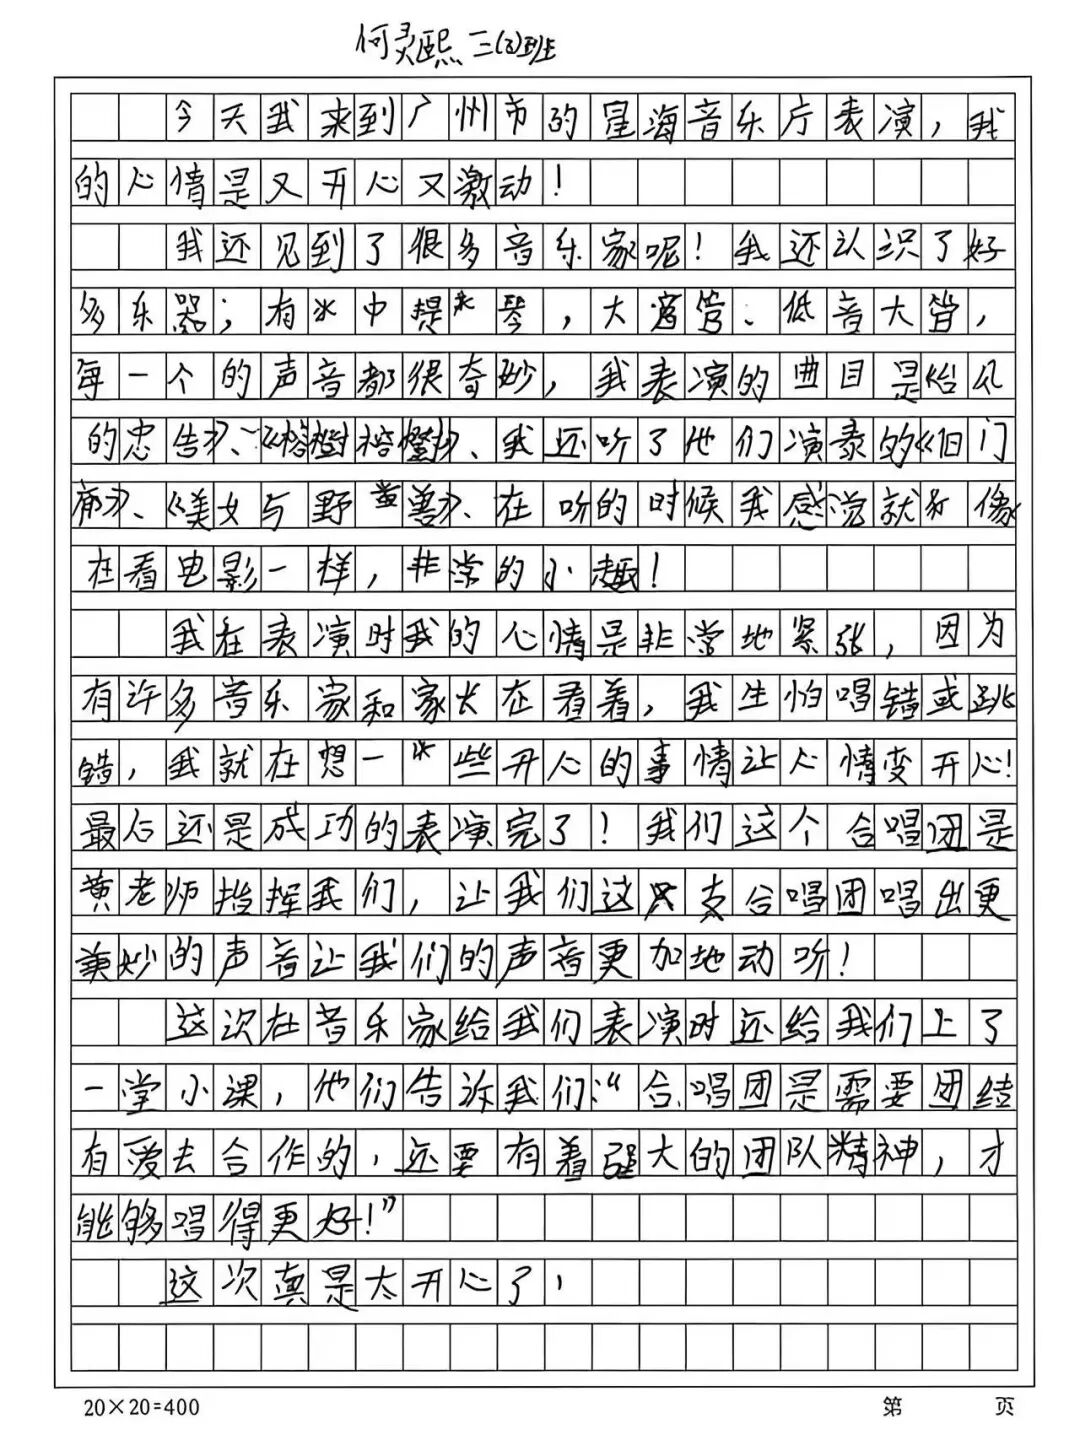 何灵熙 三(3)班
今天我来到广州市的星海音乐厅表演，我
的心情是又开心又激动！
我还见到了很多音乐家呢！我还认识了好
多乐器；有中提琴，大管、低音大管，
每一个的声音都很奇妙，我表演的曲目是《
的忠告》、《榕樹》、我还听了他们演奏的《
》、《美女与野兽》、在听的时候我感觉就好像
在看电影一样，非常的小趣！
我在表演时我的心情是非常地紧张，因为
有许多音乐家和家长在看着，我生怕唱错或跳
错，我就在想一些开心的事情让心情变开心！
最后还是成功的表演完了！我们这个合唱团是
黄老师指挥我们，让我们这支合唱团唱出更
美妙的声音让我们的声音更加地动听！
这次在音乐家给我们表演时还给我们上了
一堂小课，他们告诉我们：“合唱团是需要团结
有爱去合作的，还要有着强大的团队精神，才
能够唱得更好！”
这次真是太开心了，
20×20=400
第 页